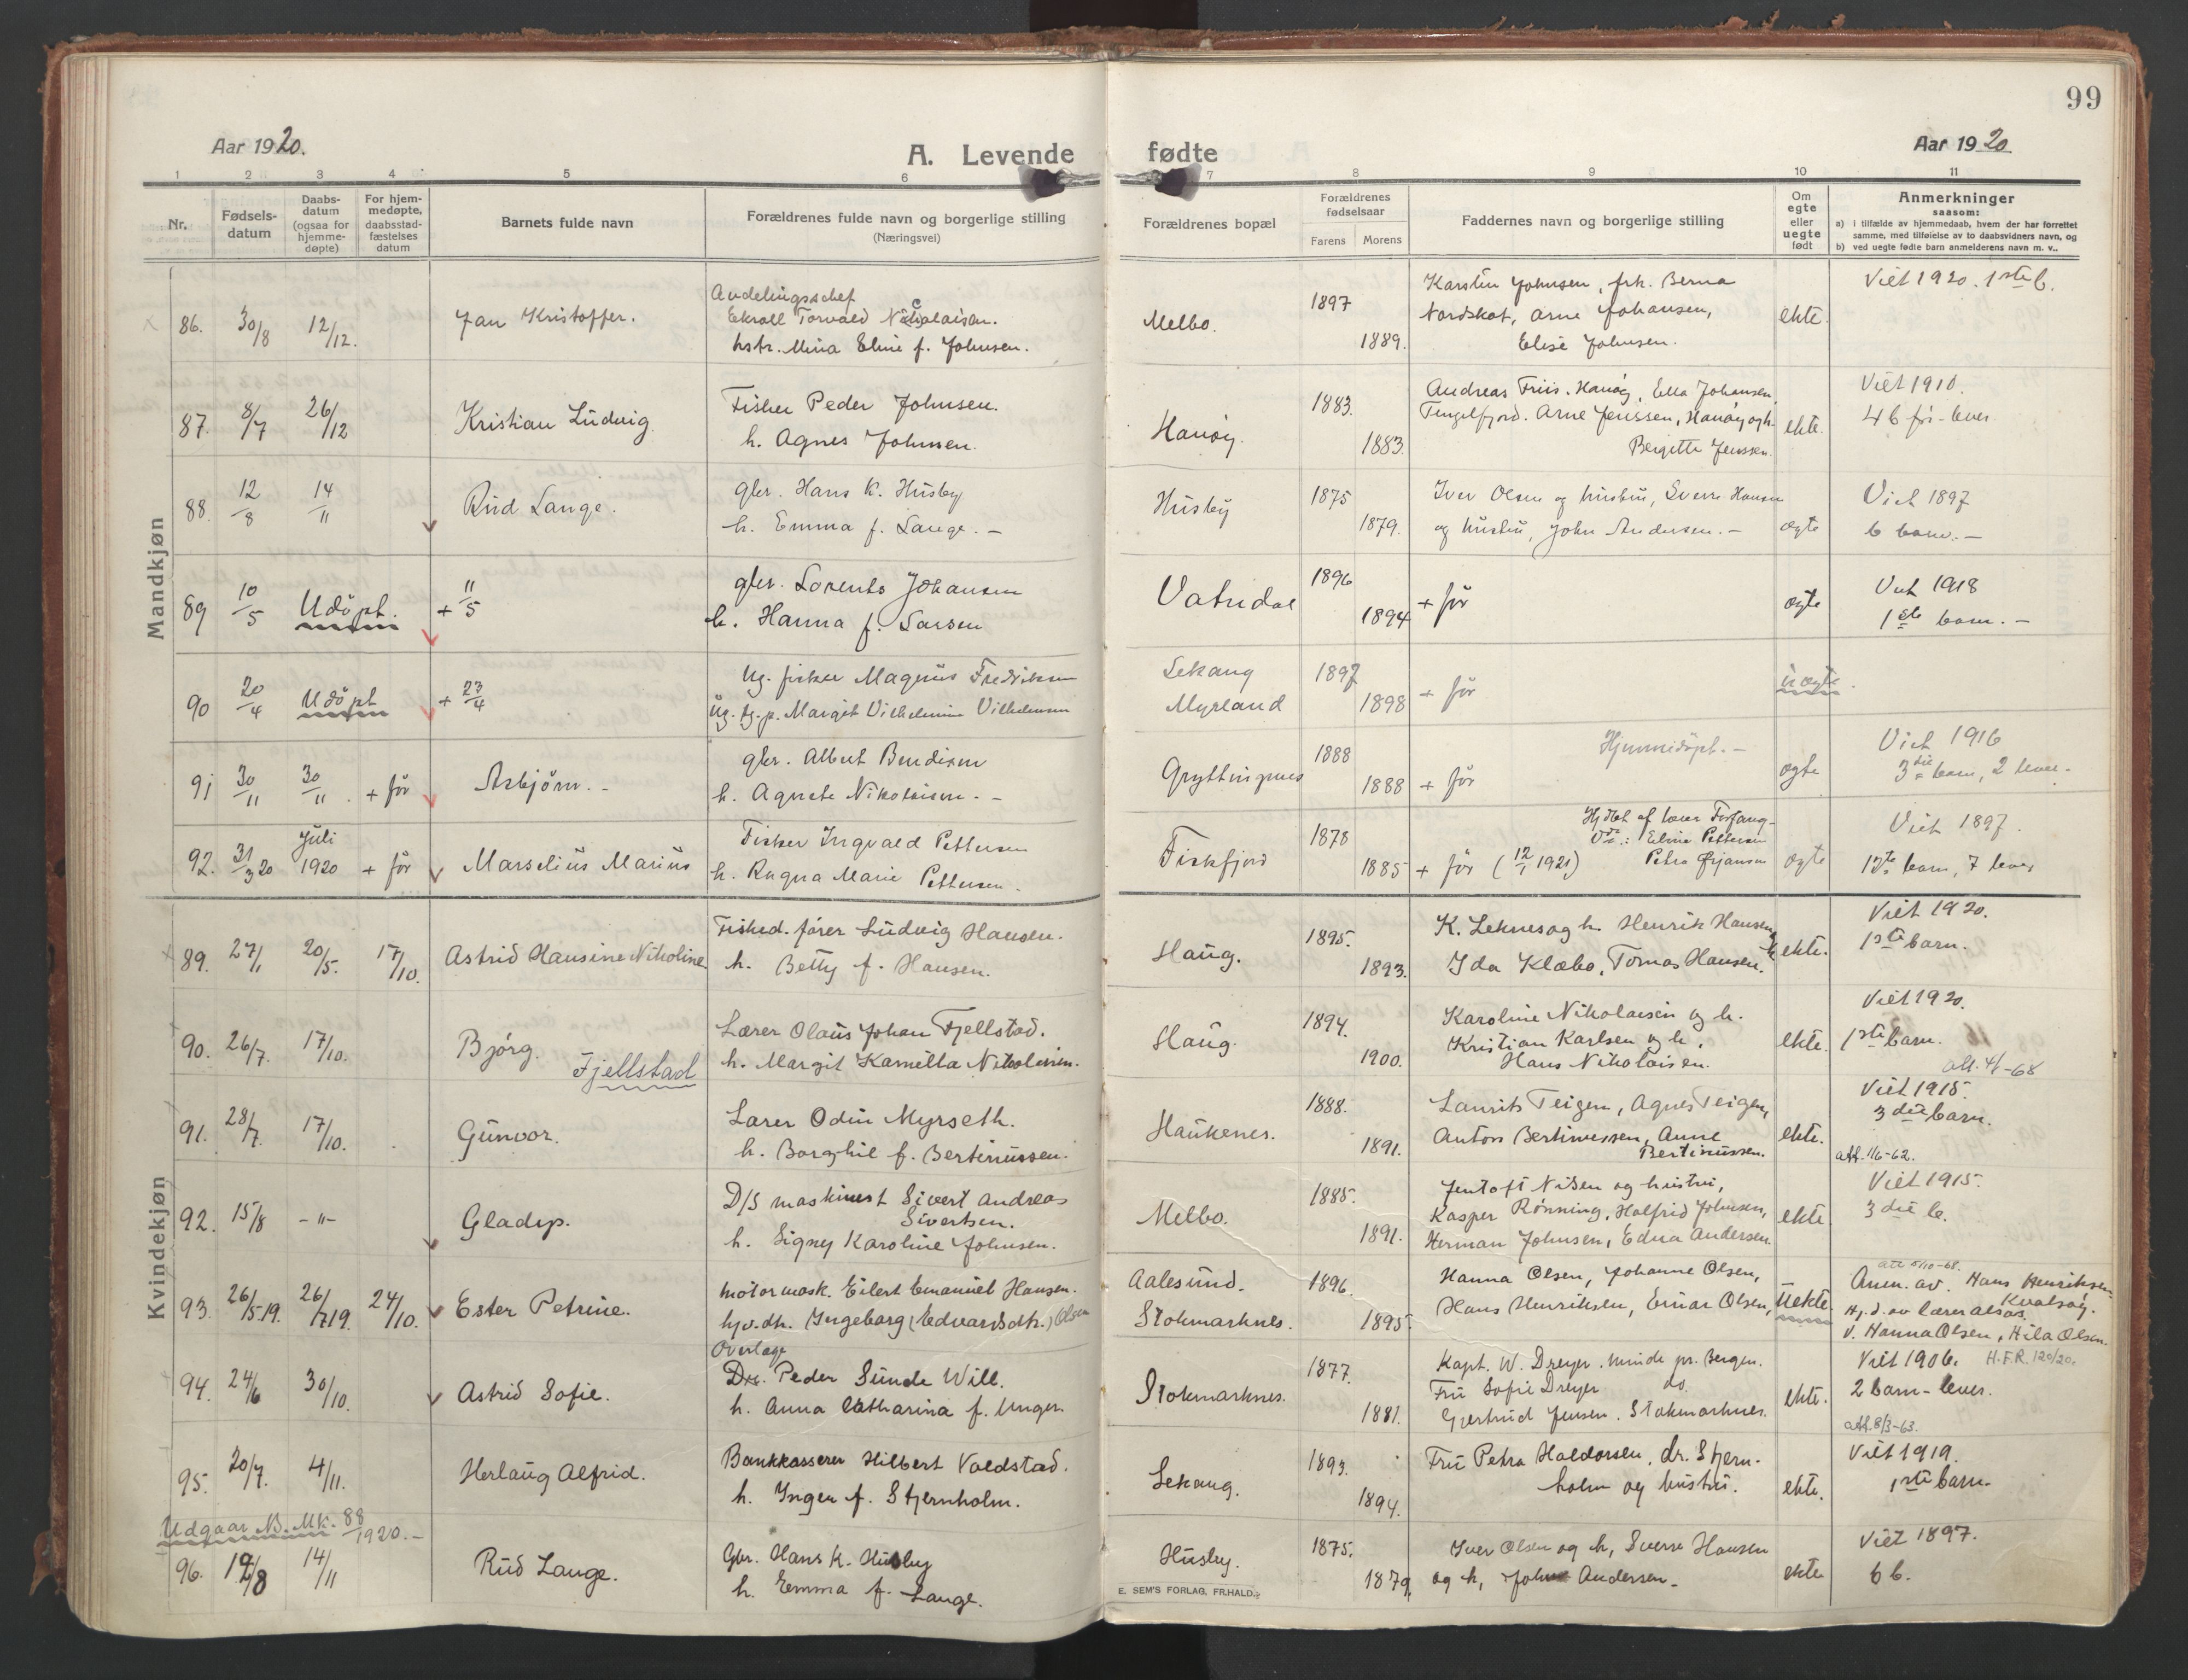 99
Aar 1920.
A. Levende fødte
Aar 1920
1 2 3 4 5 6 7 8 9 10 11
Nr.
Fødsels-
datum
Daabs-
datum
(ogsaa for
hjemme-
døpte)
For hjem-
medøpte,
daabsstad-
fæstelses
datum
Barnets fulde navn
Forældrenes fulde navn og borgerlige stilling
(Næringsvei)
Forældrenes bopæl
Forældrenes
fødselsaar
Farens Morens
Faddernes navn og borgerlige stilling
Om
egte
eller
uegte
født
Anmerkninger
saasom:
a) i tilfælde av hjemmedaab, hvem der har forrettet
samme, med tilføielse av to daabsvidners navn, og
b) ved uegte fødte barn anmelderens navn m. v..
Mandkjøn
86. 30/8 12/12. Jan Kristoffer.
Avdelingschef
Ekroll Torvald Nicolaisen.
hstr. Mina Eline f. Johnsen.
Melbo. 1897 1889.
Karsten Johnsen, frk. Berna
Nordskot, Arne Johansen,
Elise Johnsen.
ekte.
Viet 1920. 1ste b.
87. 8/7 26/12 Kristian Ludvig
Fisker Peder Johnsen.
h. Agnes Johnsen.
Hanøy. 1883. 1883.
Andreas Friis. Hanøy, Ella Johansen,
Tengelfjord. Arne Jenssen, Hanøy og h.
Bergitte Jenssen.
ekte.
Viet 1910.
4 b før - lever
88. 12/8 14/11 Rud Lange.
gbr. Hans K. Husby
h. Emma f. Lange. -
Husby 1875 1879.
Iver Olsen og hustru, Sverre Hansen
og hustru, John Andersen. -
ægte
Viet 1897
6 barn. -
89 10/5 Udöpt. + 11/5
gbr. Lorents Johansen
h. Hanna f. Larsen
Vatndal 1896 1894
+ før
ægte
Viet 1918
1ste barn. -
90 20/4 Udöpt + 23/4
Ug. fisker Magnus Fredriksen
Ug. tj.p. Margit Vilhelmine Vilhelmsen
Sekang
Myrland
1897 1898
+ før
uægte.
91 30/11 30/11. + før Asbjörn. -
gbr. Albert Bendiksen
h. Agnete Nikolaisen. -
Gryttingnes 1888 1888
+ før
Hjemmedöpt. -
ægte
Viet 1916
3die barn, 2 lever.
92. 31/3 20 Juli 1920 + før Marselius Marius
Fisker Ingvald Pettersen
h. Ragna Marie Pettersen.
Fiskfjord 1878 1885
+ før (12/1 1921)
Hjdøbt af lærer Forfang -
Elvine Pettersen
Petra Ørjansen
ægte
Viet 1897.
12te barn, 7 lever
Kvindekjøn
89. 27/1 20/5. 17/10. Astrid Hansine Nikoline.
Fisked. fører Ludvig Hansen.
h. Betty f. Hansen.
Haug. 1895. 1893.
K. Leknes og h. Henrik Hansen
Ida Klæbo, Tomas Hansen.
ekte.
Viet 1920.
1ste barn.
90. 26/7. 17/10. Bjørg. Fjellstad
Lærer Olaus Johan Fjellstad.
h. Margit Kamilla Nikolaisen.
Haug. 1894. 1900.
Karoline Nikolaisen og h.
Kristian Karlsen og h,
Hans Nikolaisen.
ekte.
Viet 1920.
1ste barn.
att. 4/1-68
91. 28/7. 17/10. Gunvor.
Lærer Odin Myrseth.
h. Borghil f. Bertinussen.
Haukenes. 1888. 1891.
Laurits Teigen, Agnes Teigen,
Anton Bertinussen, Anne
Bertinussen.
ekte.
Viet 1915.
3die barn.
att. 1/6-62.
92. 15/8 -"- Gladys.
D/S maskinist Sivert Andreas
Sivertsen.
h. Signy Karoline Johnsen.
Melbo. 1885. 1891.
Jentoft Nilsen og hustru,
Kasper Rønning, Halfrid Johnsen,
Herman Johnsen, Edna Andersen.
ekte.
Viet 1915.
3die b.
93. 26/5.19. 26/7 19. 24/10. Ester Petrine.
motormask. Eilert Emanuel Hansen.
hjv.dtr. Ingeborg (Edvardsdtr.) Olsen
Aalesund.
Stokmarknes.
1896. 1895.
Hanna Olsen, Johanne Olsen,
Hans Henriksen, Einar Olsen,
uekte.
att 5/10-68.
Anm. av. Hans Henriksen
Kvalsøy.
Hj.d. av lærer Alsos.
V. Hanna Olsen, Hila Olsen.
94. 24/6 30/10. Astrid Sofie.
Overlæge
Dr. Peder Sunde Will.
h. Anna Catharina f. Unger.
Stokmarknes. 1877. 1881.
Kapt. W. Dreyer. Minde pr. Bergen.
Fru Sofie Dreyer do.
Gjertrud Jensen. Stokmarknes.
ekte.
Viet 1906. H.F.R. 120/20.
2 barn - lever.
att. 8/3-63.
95. 20/7. 4/11. Herlaug Alfrid.
Bankkasserer Hilbert Voldstad.
h. Inger f. Stjernholm.
Sekang. 1893. 1894.
Fru Petra Haldorsen, dr. Stjern-
holm og hustru.
ekte.
Viet 1919.
1ste barn.
Udgaar N.B. Mk. 88/1920. -
96. 12/8 14/11 Rud Lange.
Gbr. Hans K. Husby
h. Emma f. Lange.
Husby. 1875. 1879.
Iver Olsen og h, Sverre Hansen
og h, John Andersen.
ekte
Viet 1897.
6 b.
E. SEM'S FORLAG, FR.HALD.